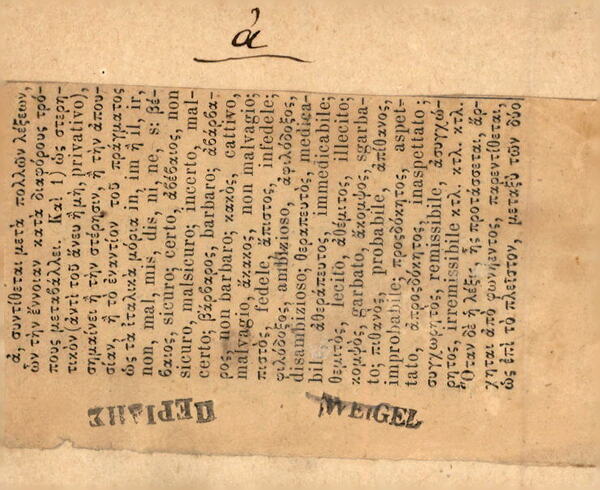 ἀ
ἀ, συντίθεται μετὰ πολλῶν λέξεων,
ὧν τὴν ἔννοιαν κατὰ διαφόρους τρό-
πους μεταβάλλει. Καὶ 1) ὡς στερη-
τικὸν (ἀντὶ τοῦ ἄνευ ἢ μή, privativo),
σημαίνει ἢ τὴν στέρησιν ἢ τὴν ἀπου-
σίαν, ἢ τὸ ἐναντίον τοῦ πράγματος
ὡς τὰ ἰταλικὰ μόρια in, im ἢ il, ir,
non, mal, mis, dis, ni, ne, s; βέ-
βαιος, sicuro; certo, ἀβέβαιος, non
sicuro, malsicuro; incerto, mal-
certo; βάρβαρος, barbaro; ἀβάρβα-
ρος, non barbaro; κακὸς, cattivo,
malvagio, ἄκακος, non malvagio;
πιστὸς, fedele, ἄπιστος, infedele;
φιλόδοξος, ambizioso, ἀφιλόδοξος,
disambizioso; θεραπευτὸς, medica-
bile, ἀθεράπευτος, immedicabile;
θεμιτὸς, lecito, ἀθέμιτος, illecito;
κομψὸς, garbato, ἄκομψος, sgarba-
to; πιθανὸς, probabile, ἀπίθανος,
improbabile; προσδόκητος, aspet-
tato, ἀπροσδόκητος, inaspettato;
συγχωρητὸς, remissibile, ἀσυγχώ-
ρητος, irremissibile κτλ. κτλ. κτλ.
Ὅταν δὲ ἡ λέξις, ἧς προτάσσεται, ἄρ-
χηται ἀπὸ φωνήεντος, παρεντίθεται,
ὡς ἐπὶ τὸ πλεῖστον, μεταξὺ τῶν δύο
ΠΕΡΙΔΗΣ
WEIGEL